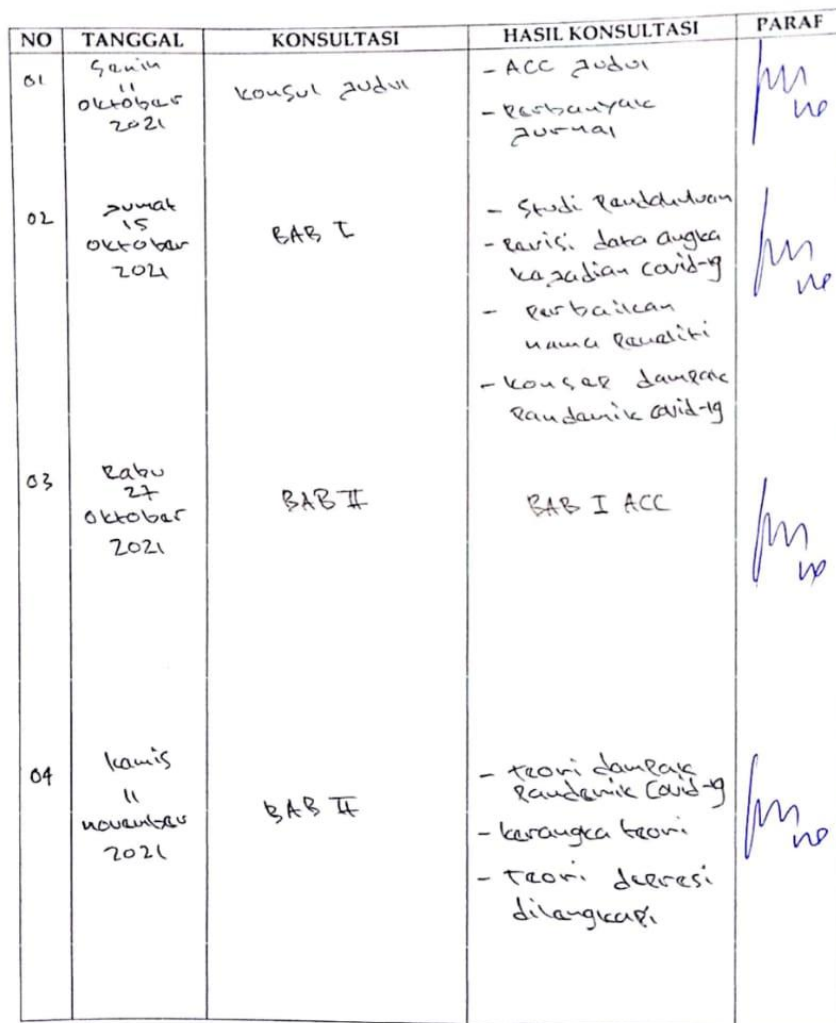 NO TANGGAL KONSULTASI HASIL KONSULTASI PARAF
01
Senin
11
oktober
2021
konsul judul
- ACC judul
- Perbanyak
jurnal
02
Jumat
15
oktober
2021
BAB I
- Studi Pendahuluan
- Revisi data angka
kejadian Covid-19
- Perbaikan
nama Peneliti
- konsep dampak
Pandemik Covid-19
03
Rabu
27
oktober
2021
BAB II
BAB I ACC
04
kamis
11
november
2021
BAB II
- teori dampak
Pandemik Covid-19
- kerangka teori
- Teori depresi
dilengkapi